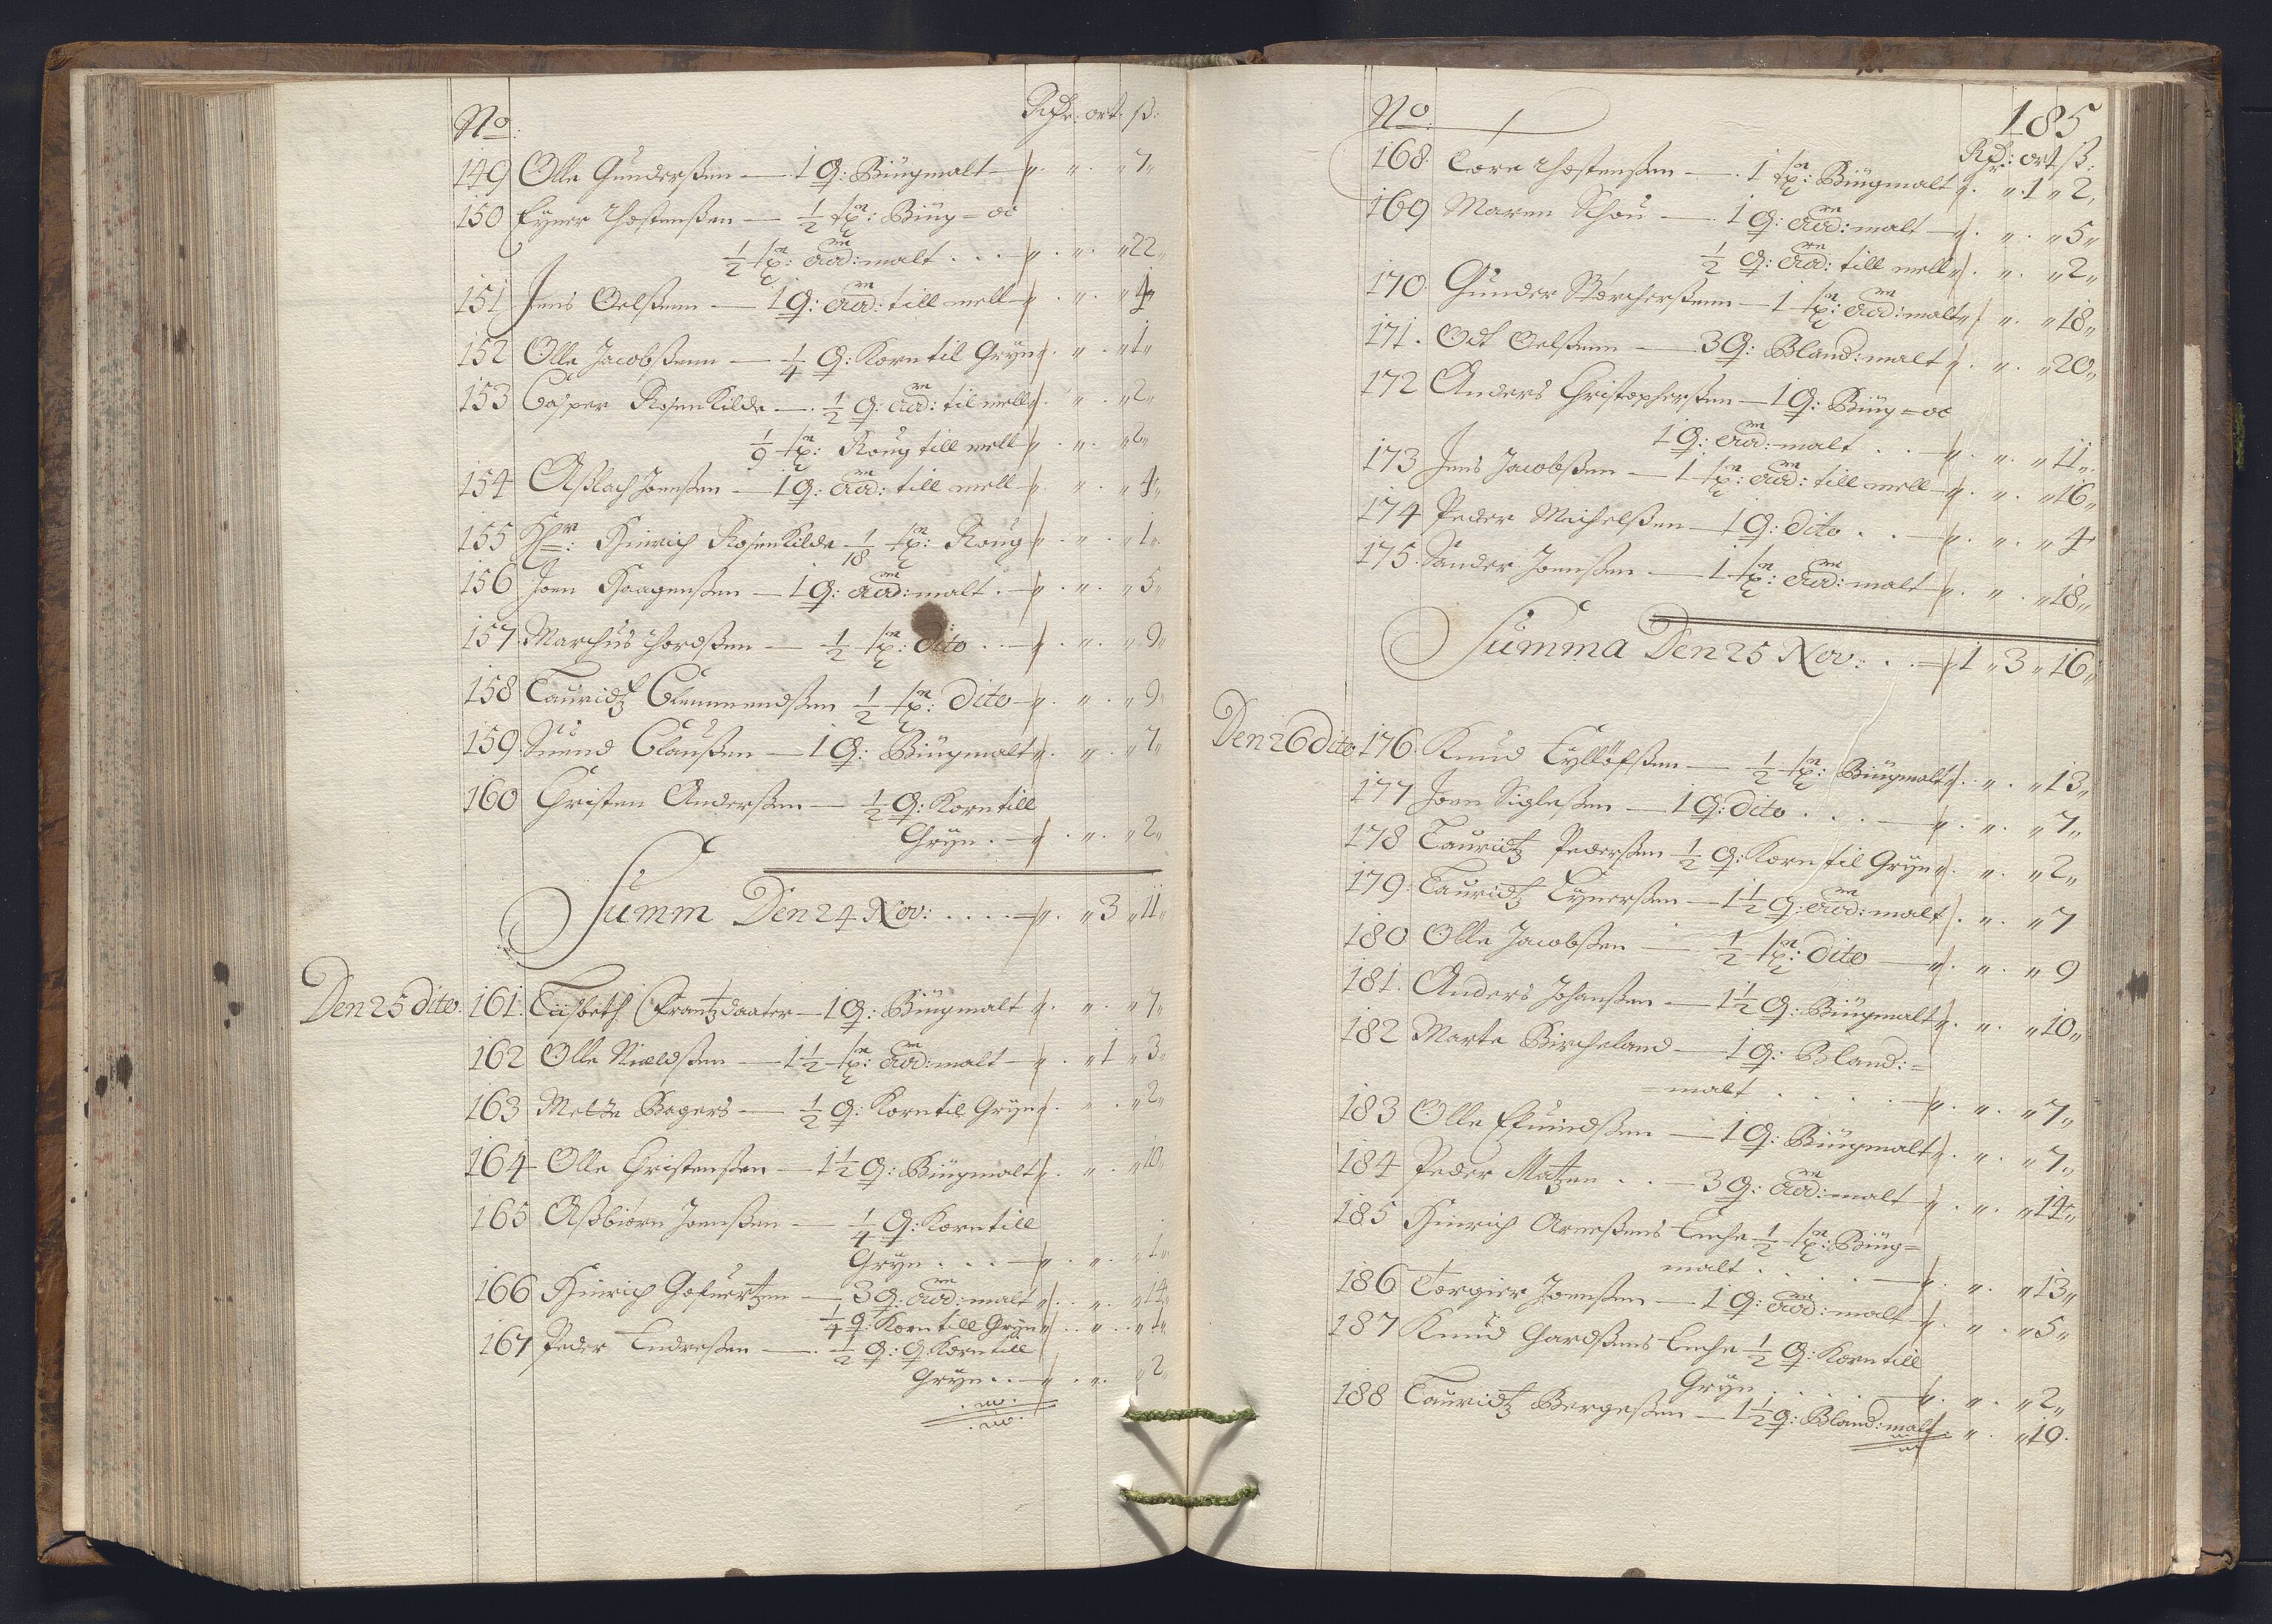 No: Rdr: ort: ß:
149 Olle Gunderßen — 1 Q: Bÿugmalt — „ „ 7„
150 Eyner Thostenßen — ½ tn: Bÿug = oc
½ tn: aad: malt . . . — „ „ 22„
151 Jens Oelßenn — 1 Q: aad: till mell — „ „ 4„
152 Olle Jacobßenn — ¼ Q: Korn til Gryn „ „ 1„
153 Casper Rosenkilde — ½ Q: aad: til mell „ „ 2„
1/9 tn: Roug till mell „ „ 2„
154 Aßlach Joenßen — 1 Q: aad: till mell „ „ 4„
155 Hr: Hinrich Rosenkilde 1/18 tn: Roug „ „ 1„
156 Joen Haagenßen — 1 Q: aad: malt . — „ „ 5„
157 Marchus Thordßen — ½ tn: dito . . — „ „ 9„
158 Lauridtz Clemmendßen ½ tn: dito — „ „ 9„
159 Suend Claußen — 1 Q: Bÿugmalt „ „ 7„
160 Christen Anderßen — ½ Q: Korn till
Gryn . — „ „ 2„
Summ Den 24 Nov: . . . . — „ „ 3 „ 11„
Den 25 dito. 161. Liisbeth Frantzdaater — 1 Q: Bÿugmalt „ „ 7„
162 Olle Nieldßen — 1½ tn: aad: malt — „ „ 1 „ 3„
163 Mette Bagers — ½ Q: Korn til Gryn „ „ 2„
164 Olle Christenßen — 1½ Q: Bÿugmalt „ „ 10„
165 Aßbiørn Joenßen — ¼ Q: Korn till
Gryn . . . — „ „ 1„
166 Hinrich Gofuertzen — 3 Q: aad: malt „ „ 14„
¼ Q: Korn till Gryn „ „ 1„
167 Peder Endreßen — ½ Q: Q Korn till
Gryn . . — „ „ 2„
185
No: Rdr: ort ß:
168. Tore Thostenßen — 1 tn: Bÿugmalt „ „ 1 „ 2„
169 Maren Schou — 1 Q: aad: malt — „ „ 5„
½ Q: aad: till mell „ „ 2„
170. Gunder Børcherßenn — 1 tn: aad: malt „ „ 18„
171. Odt Oelßenn — 3 Q: Bland: malt „ „ 20„
172 Anders Christopherßen — 1 Q: Bÿug = oc
1 Q: aad: malt . . — „ „ 11„
173 Jens Jacobßen — 1 tn: aad: till mell — „ „ 16„
174 Peder Michelßen — 1 Q: dito . . — „ „ 4„
175. Sander Joenßen — 1 tn: aad: malt „ „ 18„
Summa Den 25 Nov: . . — 1 „ 3 „ 16„
Den 26 dito 176. Knud Tyllöfßen — ½ tn: Bÿugmalt „ „ 13„
177 Joen Sigleßen — 1 Q: dito . . . — „ „ 7„
178 Lauridtz Pederßen ½ Q: Korn til Gryn „ „ 2„
179. Lauridtz Eynerßen — 1½ Q: aad: malt „ „ 7
180 Olle Jacobßen — ½ tn: dito — „ „ 9
181. Anders Johanßen — 1½ Q: Bÿugmalt „ „ 10„
182 Marte Bircheland — 1 Q: Bland: =
= malt . . . . — „ „ 7„
183 Olle Efuindßen — 1 Q: Bÿugmalt „ „ 7„
184 Peder Matzen . . — 3 Q: aad: malt — „ „ 14„
185 Hinrich Arneßens Enche ½ tn: Bÿug =
malt . . . . — „ „ 13„
186 Torgier Joenßen — 1 Q: aad: malt „ „ 5„
187 Knud Gardßens Enche ½ Q: Korn till
Gryn . . . — „ „ 2„
188 Lauridtz Bergeßen — 1½ Q: Bland: malt „ „ 10.